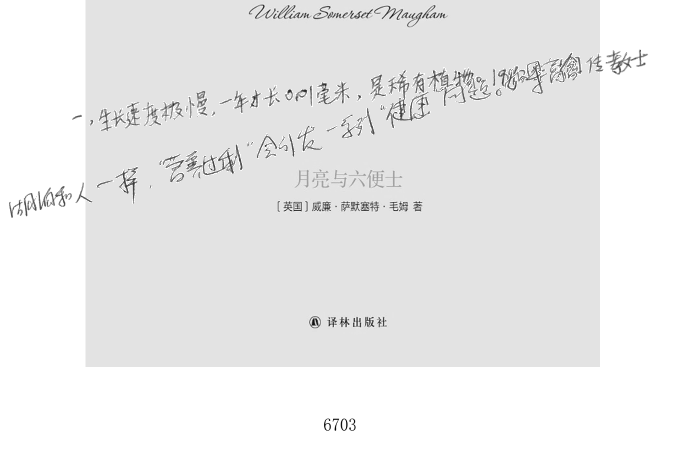 William Somerset Maugham
一，生长速度极慢，一年才长0.01毫米，是稀有植物。！
湖泊和人一样，“营养过剩”会引发一系列“健康”问题。
月亮与六便士
[英国]威廉·萨默塞特·毛姆 著
译林出版社
6703